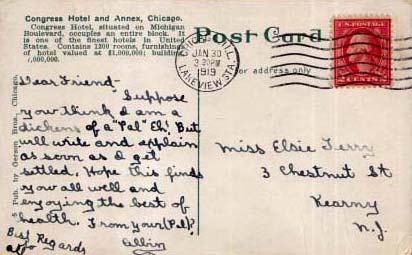 Congress Hotel and Annex, Chicago.
Congress Hotel, situated on Michigan
Boulevard, occupies an entire block. It
is one of the finest hotels in United
States. Contains 1200 rooms, furnishings
of hotel valued at $1,000,000; building
,000,000.
Post Card
for address only
CHICAGO, ILL.
JAN 30
3 30PM
1919
LAKEVIEW STA.
U.S. POSTAGE
2 CENTS 2
Dear Friend-
Suppose
you think I am a
dickens of a "Pal" Eh! But
will write and explain
as soon as I get
settled. Hope this finds
you all well and
enjoying the best of
health. From your (Pal)?
Albin
Best Regards
to
all
Miss Elsie Terry
3 Chestnut St
Kearny
N.J.
Pub. by Gerson Bros., Chicago.